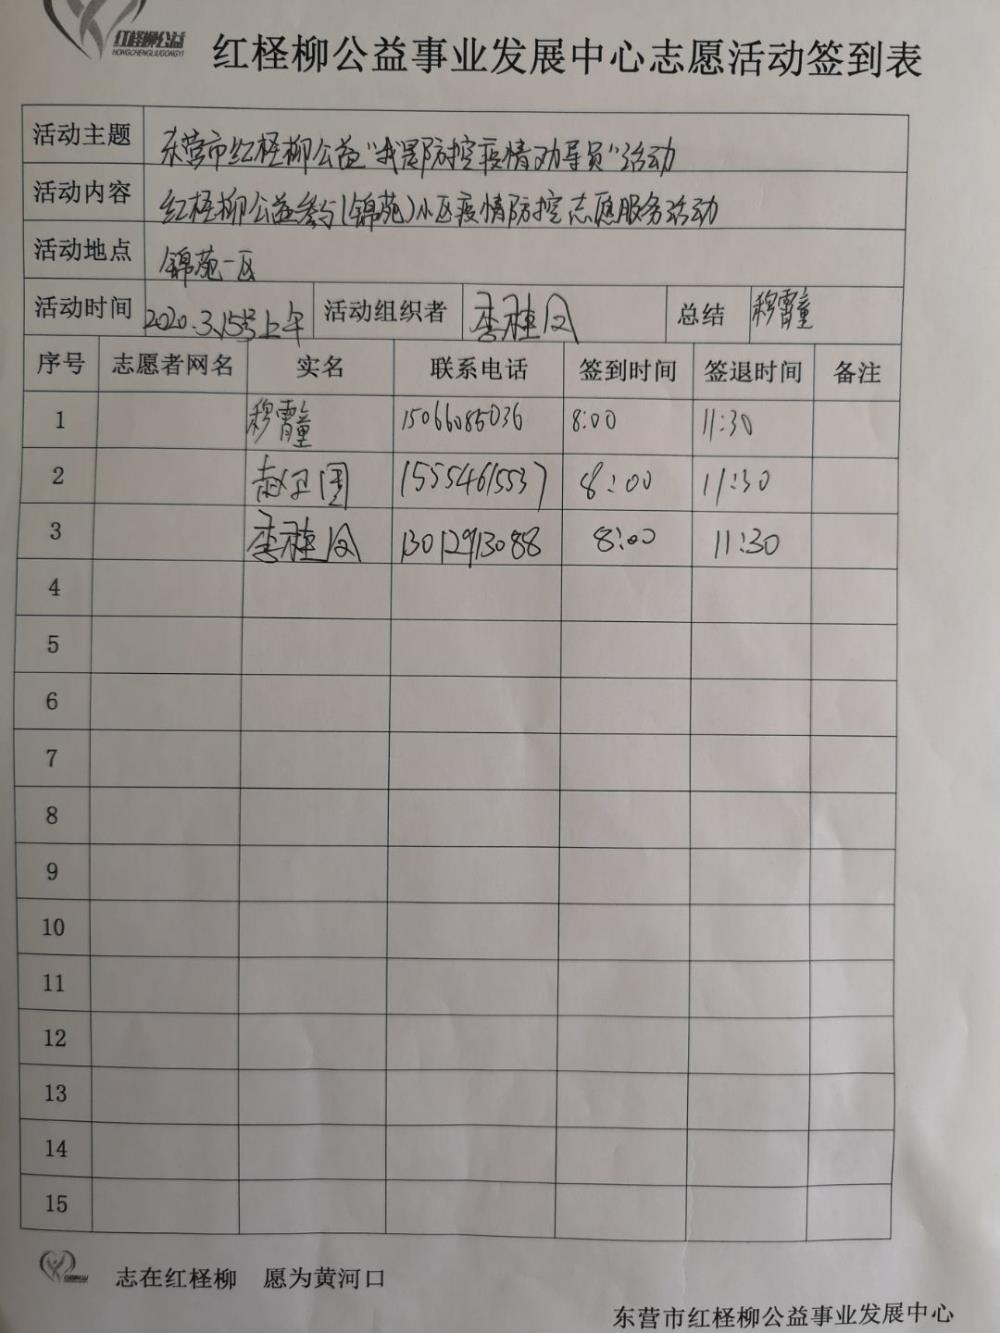 红柽柳公益
HONGCHENGLIUGONGYI
红柽柳公益事业发展中心志愿活动签到表
活动主题 东营市红柽柳公益“我是防控疫情劝导员”活动
活动内容 红柽柳公益参与(锦苑)小区疫情防控志愿服务活动
活动地点 锦苑一区
活动时间 2020.3.15号上午 活动组织者 李桂 总结 穆霄童
序号 志愿者网名 实名 联系电话 签到时间 签退时间 备注
1 穆霄童 15066085036 8:00 11:30
2 赵卫国 15554615537 8:00 11:30
3 李桂 13012913088 8:00 11:30
4
5
6
7
8
9
10
11
12
13
14
15
志在红柽柳 愿为黄河口
东营市红柽柳公益事业发展中心